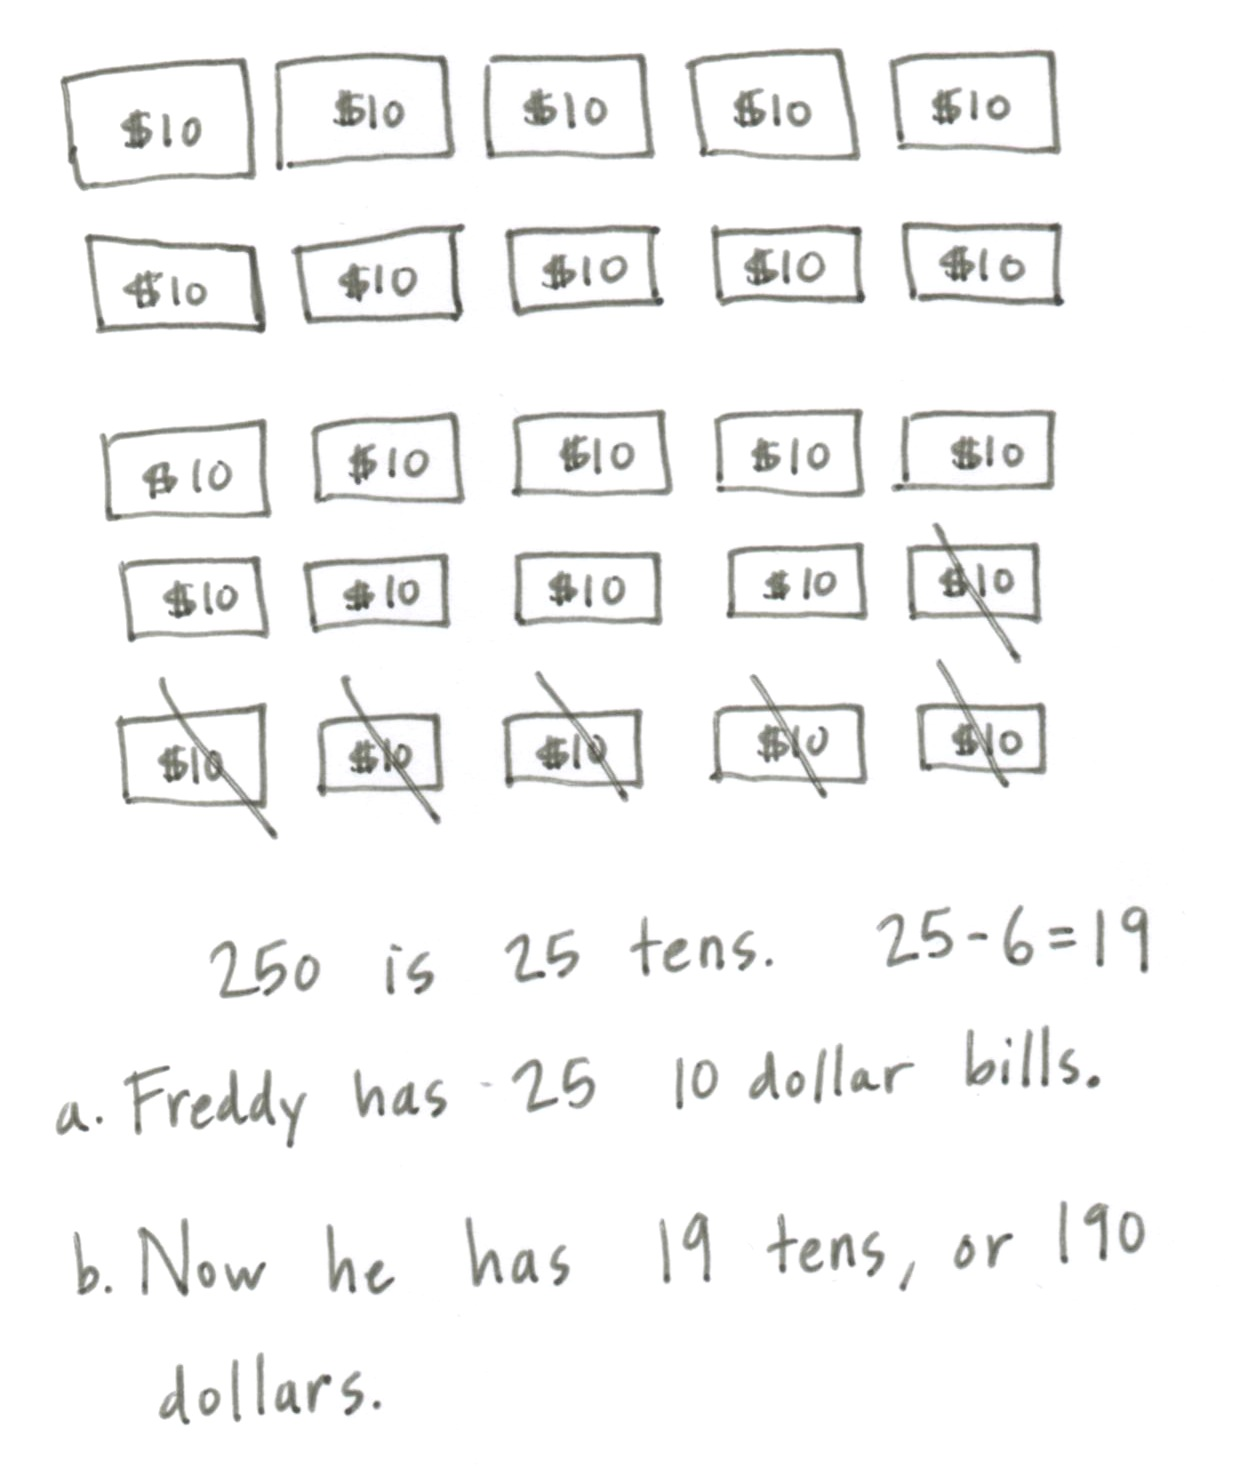 $10 $10 $10 $10 $10
$10 $10 $10 $10 $10
$10 $10 $10 $10 $10
$10 $10 $10 $10 $10
$10 $10 $10 $10 $10
250 is 25 tens. 25-6=19
a. Freddy has 25 10 dollar bills.
b. Now he has 19 tens, or 190
dollars.